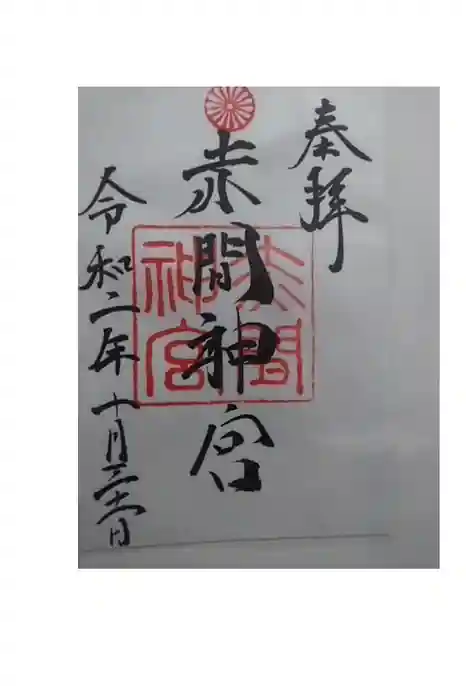 奉拝
赤間神宮
令和二年十月
赤間
神宮